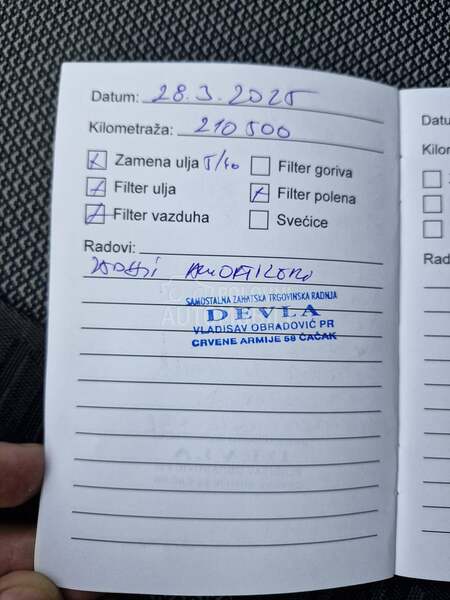 Datum: 28.3.2025
Kilometraža: 210500
Zamena ulja 5/40
Filter goriva
Filter ulja
Filter polena
Filter vazduha
Svećice
Radovi:
zadnji amortizeri
SAMOSTALNA ZAHATSKA TRGOVINSKA RADNJA
DEVLA
VLADISAV OBRADOVIĆ PR
CRVENE ARMIJE 58 ČAČAK
Datu
Kilor
Rad